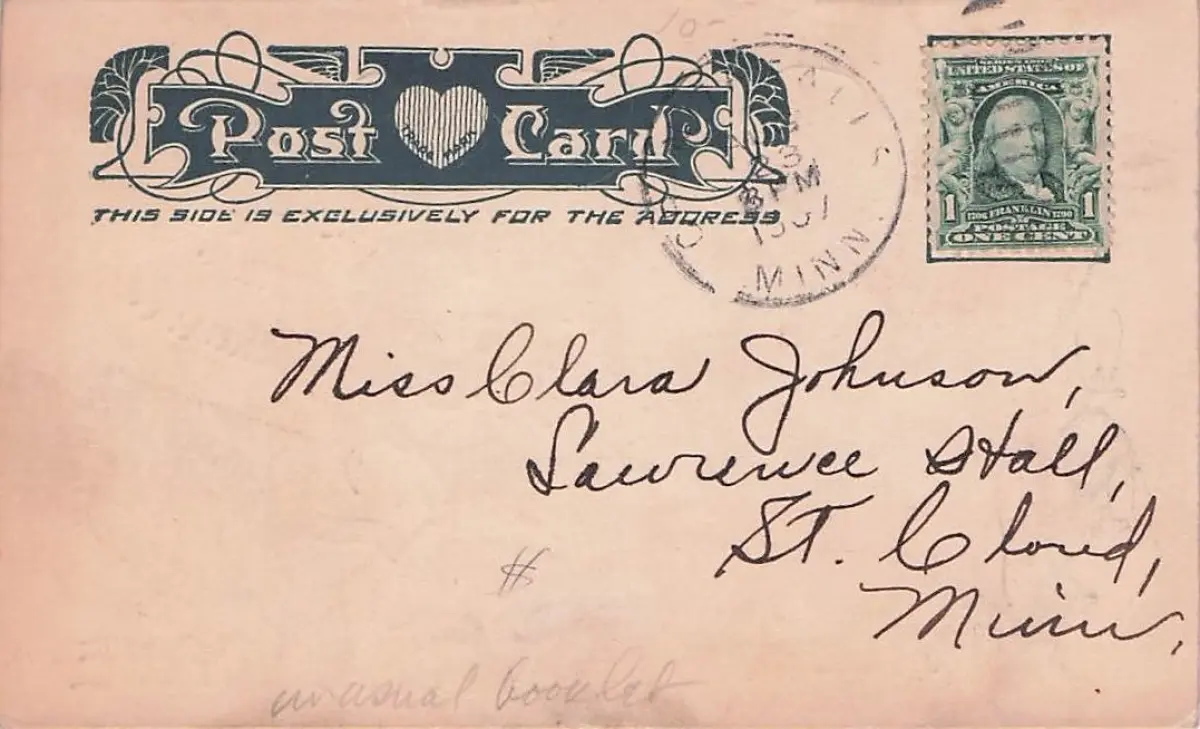 10-
Post Card
TRADE MARK
THIS SIDE IS EXCLUSIVELY FOR THE ADDRESS
3 PM
MINN.
UNITED STATES OF
AMERICA
1 1706 FRANKLIN 1790 1
POSTAGE
ONE CENT
Miss Clara Johnson,
Lawrence Hall,
St. Cloud,
Minn.
#
unusual booklet